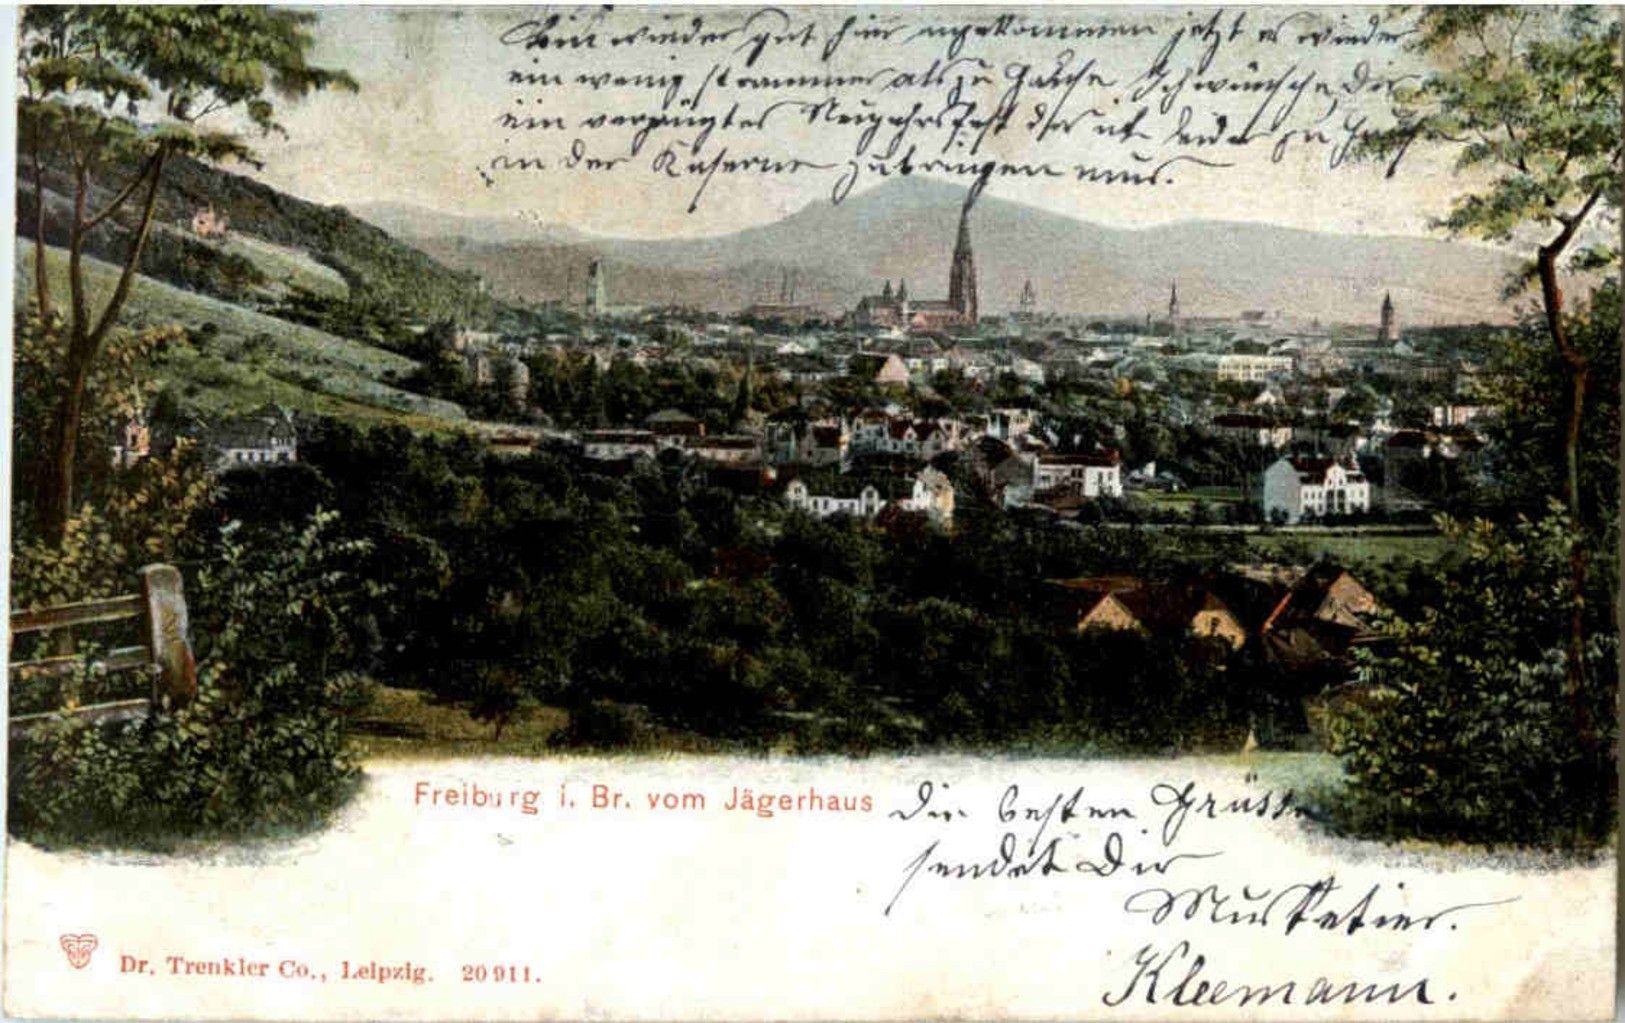 Bin wieder gut hier angekommen jetzt es wieder
ein wenig strammer als zu Hause Ich wünsche Dir
ein vergnügtes Neujahrsfest das ich leider zu
in der Kaserne zubringen mus.
Freiburg i. Br. vom Jägerhaus
Die besten Grüsse
sendet Dir
Musketier.
Kleemann.
Dr. Trenkler Co., Leipzig. 20911.